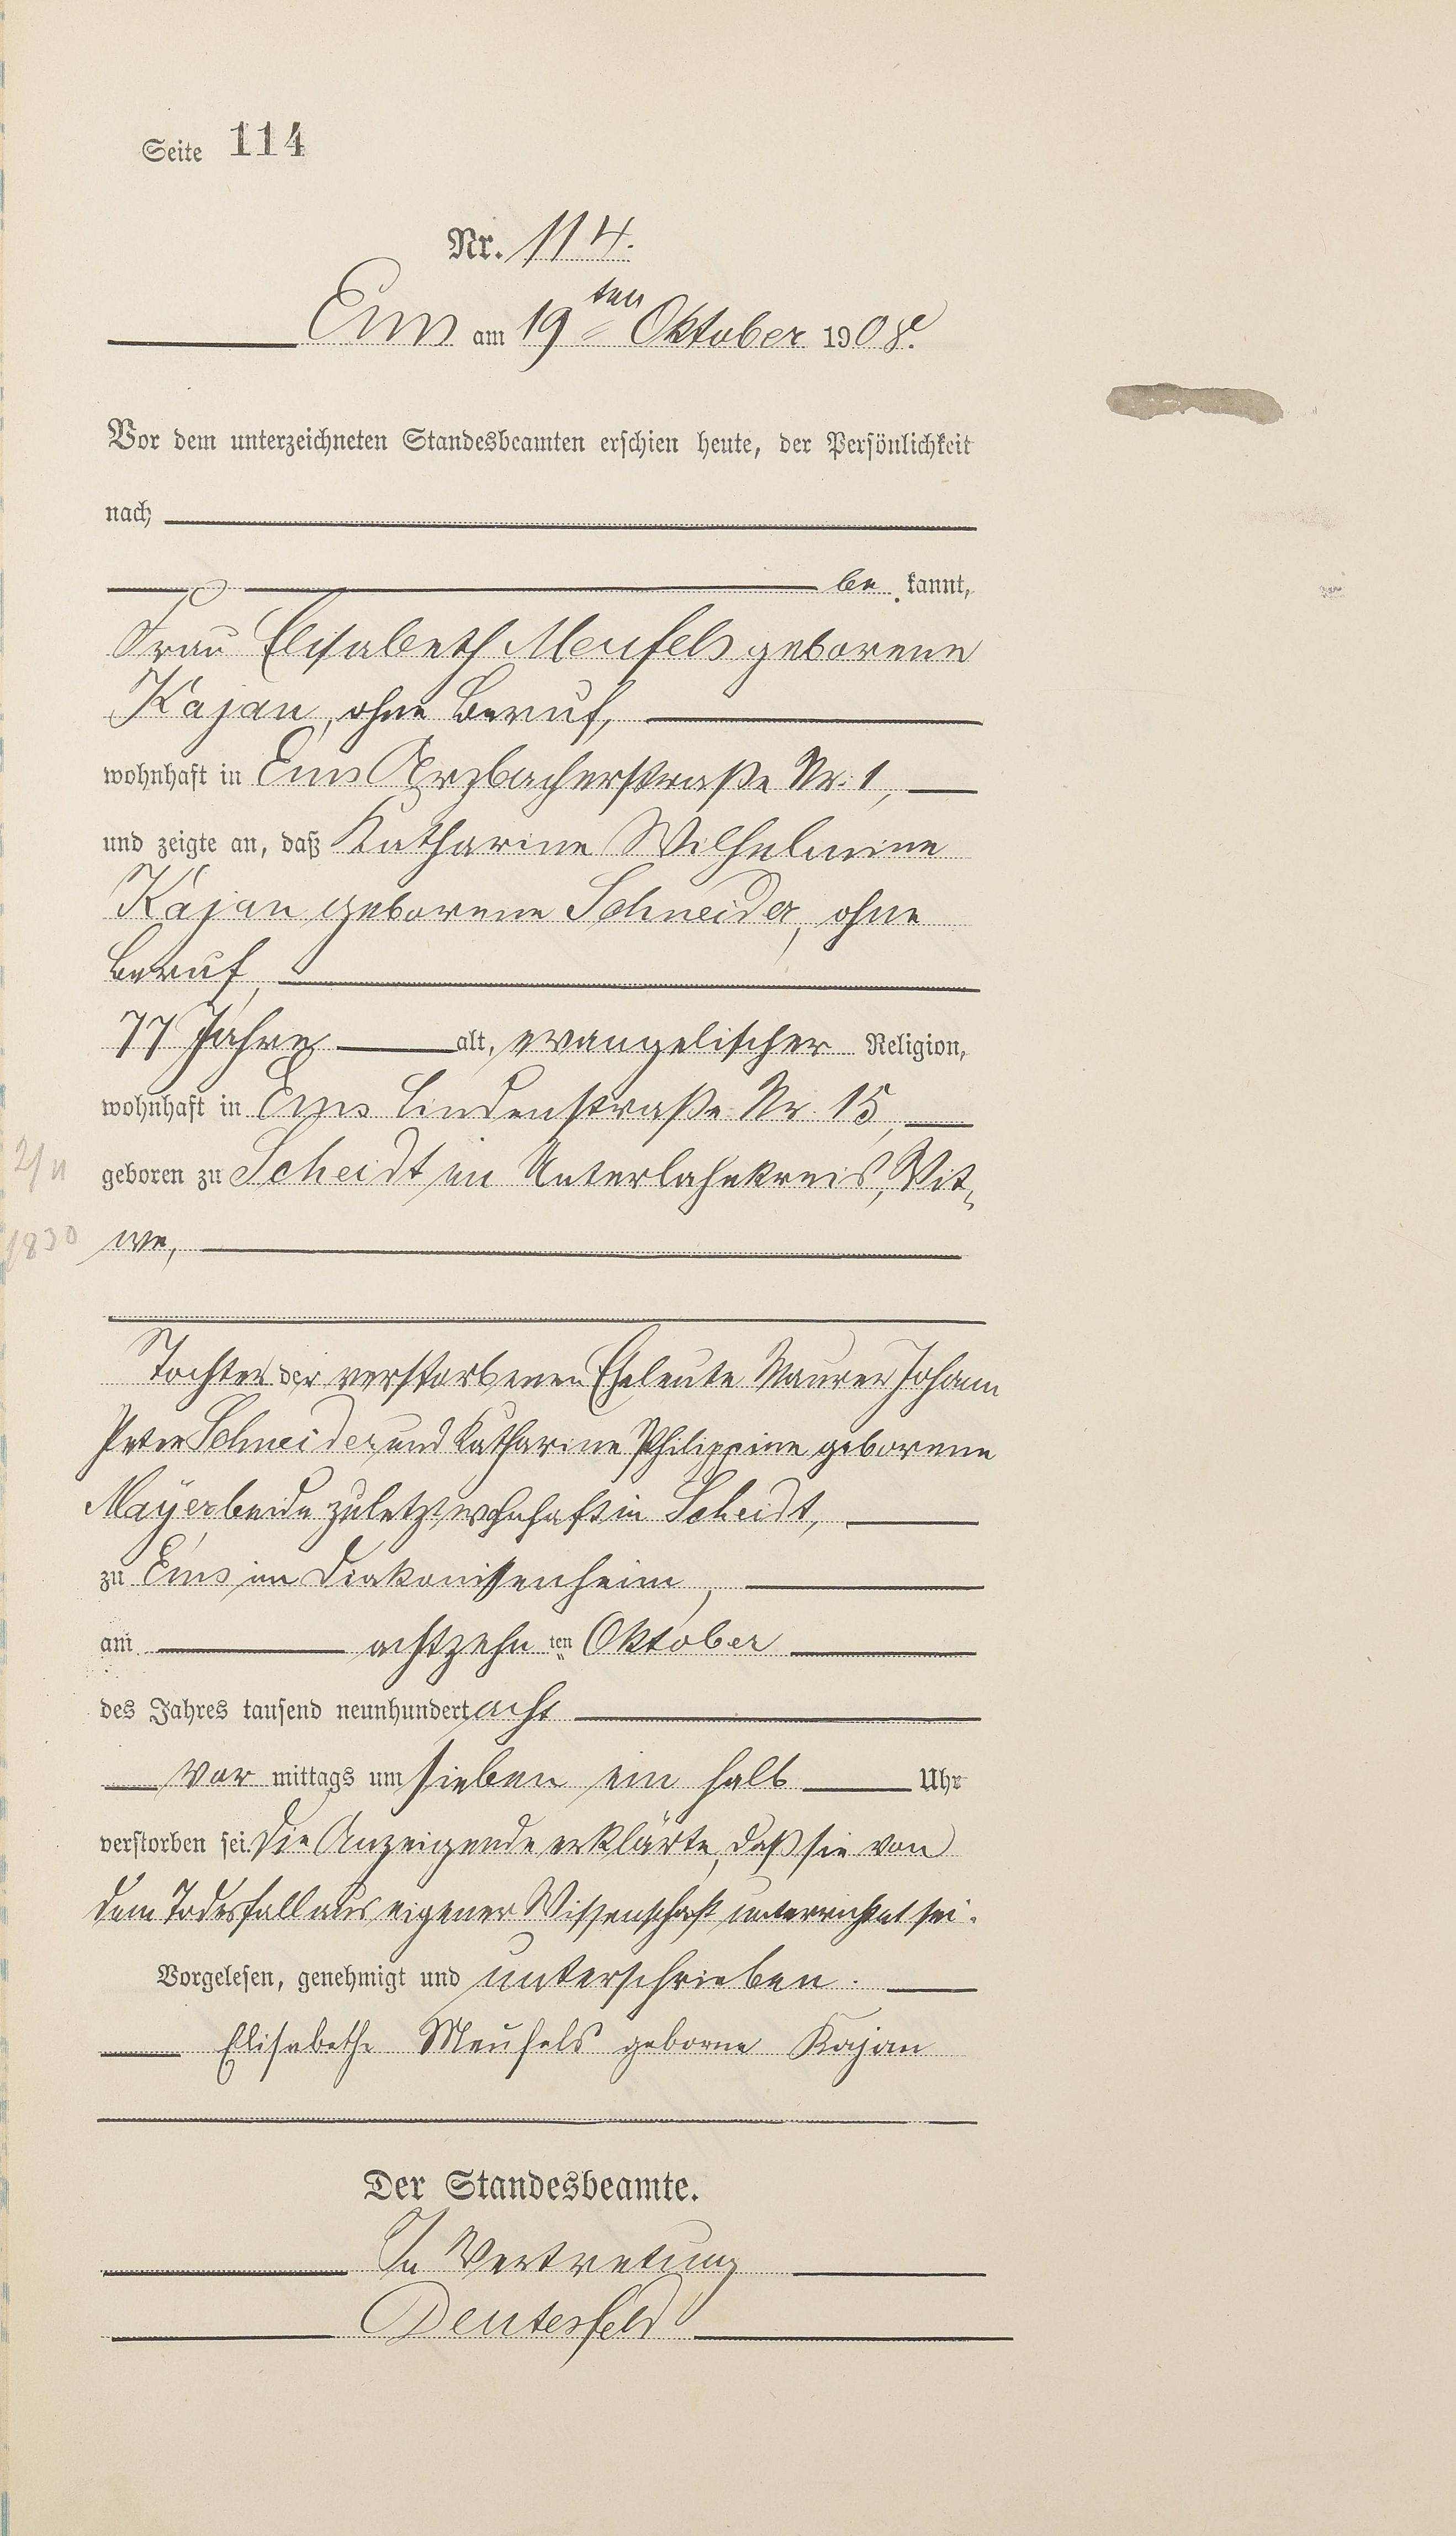 Seite 114
Nr. 114.
Ems am 19ten Oktober 1908.
Vor dem unterzeichneten Standesbeamten erschien heute, der Persönlichkeit
nach
be kannt,
Frau Elisabeth Meufels geborene
Kajan, ohne Beruf,
wohnhaft in Ems Arzbacherstraße Nr. 1,
und zeigte an, daß Katharine Wilhelmine
Kajan geborene Schneider, ohne
Beruf,
77 Jahre alt, evangelischer Religion,
wohnhaft in Ems Lindenstraße Nr. 15,
2/11
geboren zu Scheidt im Unterlahnkreis, Wit-
1830
we,
Tochter der verstorbenen Eheleute Maurer Johann
Peter Schneider und Katharine Philippine geborene
Mayer beide zuletzt wohnhaft in Scheidt,
zu Ems im Diakonissenheim,
am achtzehn ten Oktober
des Jahres tausend neunhundert acht
Vor mittags um sieben ein halb Uhr
verstorben sei. Die Anzeigende erklärte, daß sie von
dem Todesfall aus eigener Wissenschaft unterrichtet sei.
Vorgelesen, genehmigt und unterschrieben.
Elisabethe Meufels geborne Kajan
Der Standesbeamte.
In Vertretung
Deutesfeld